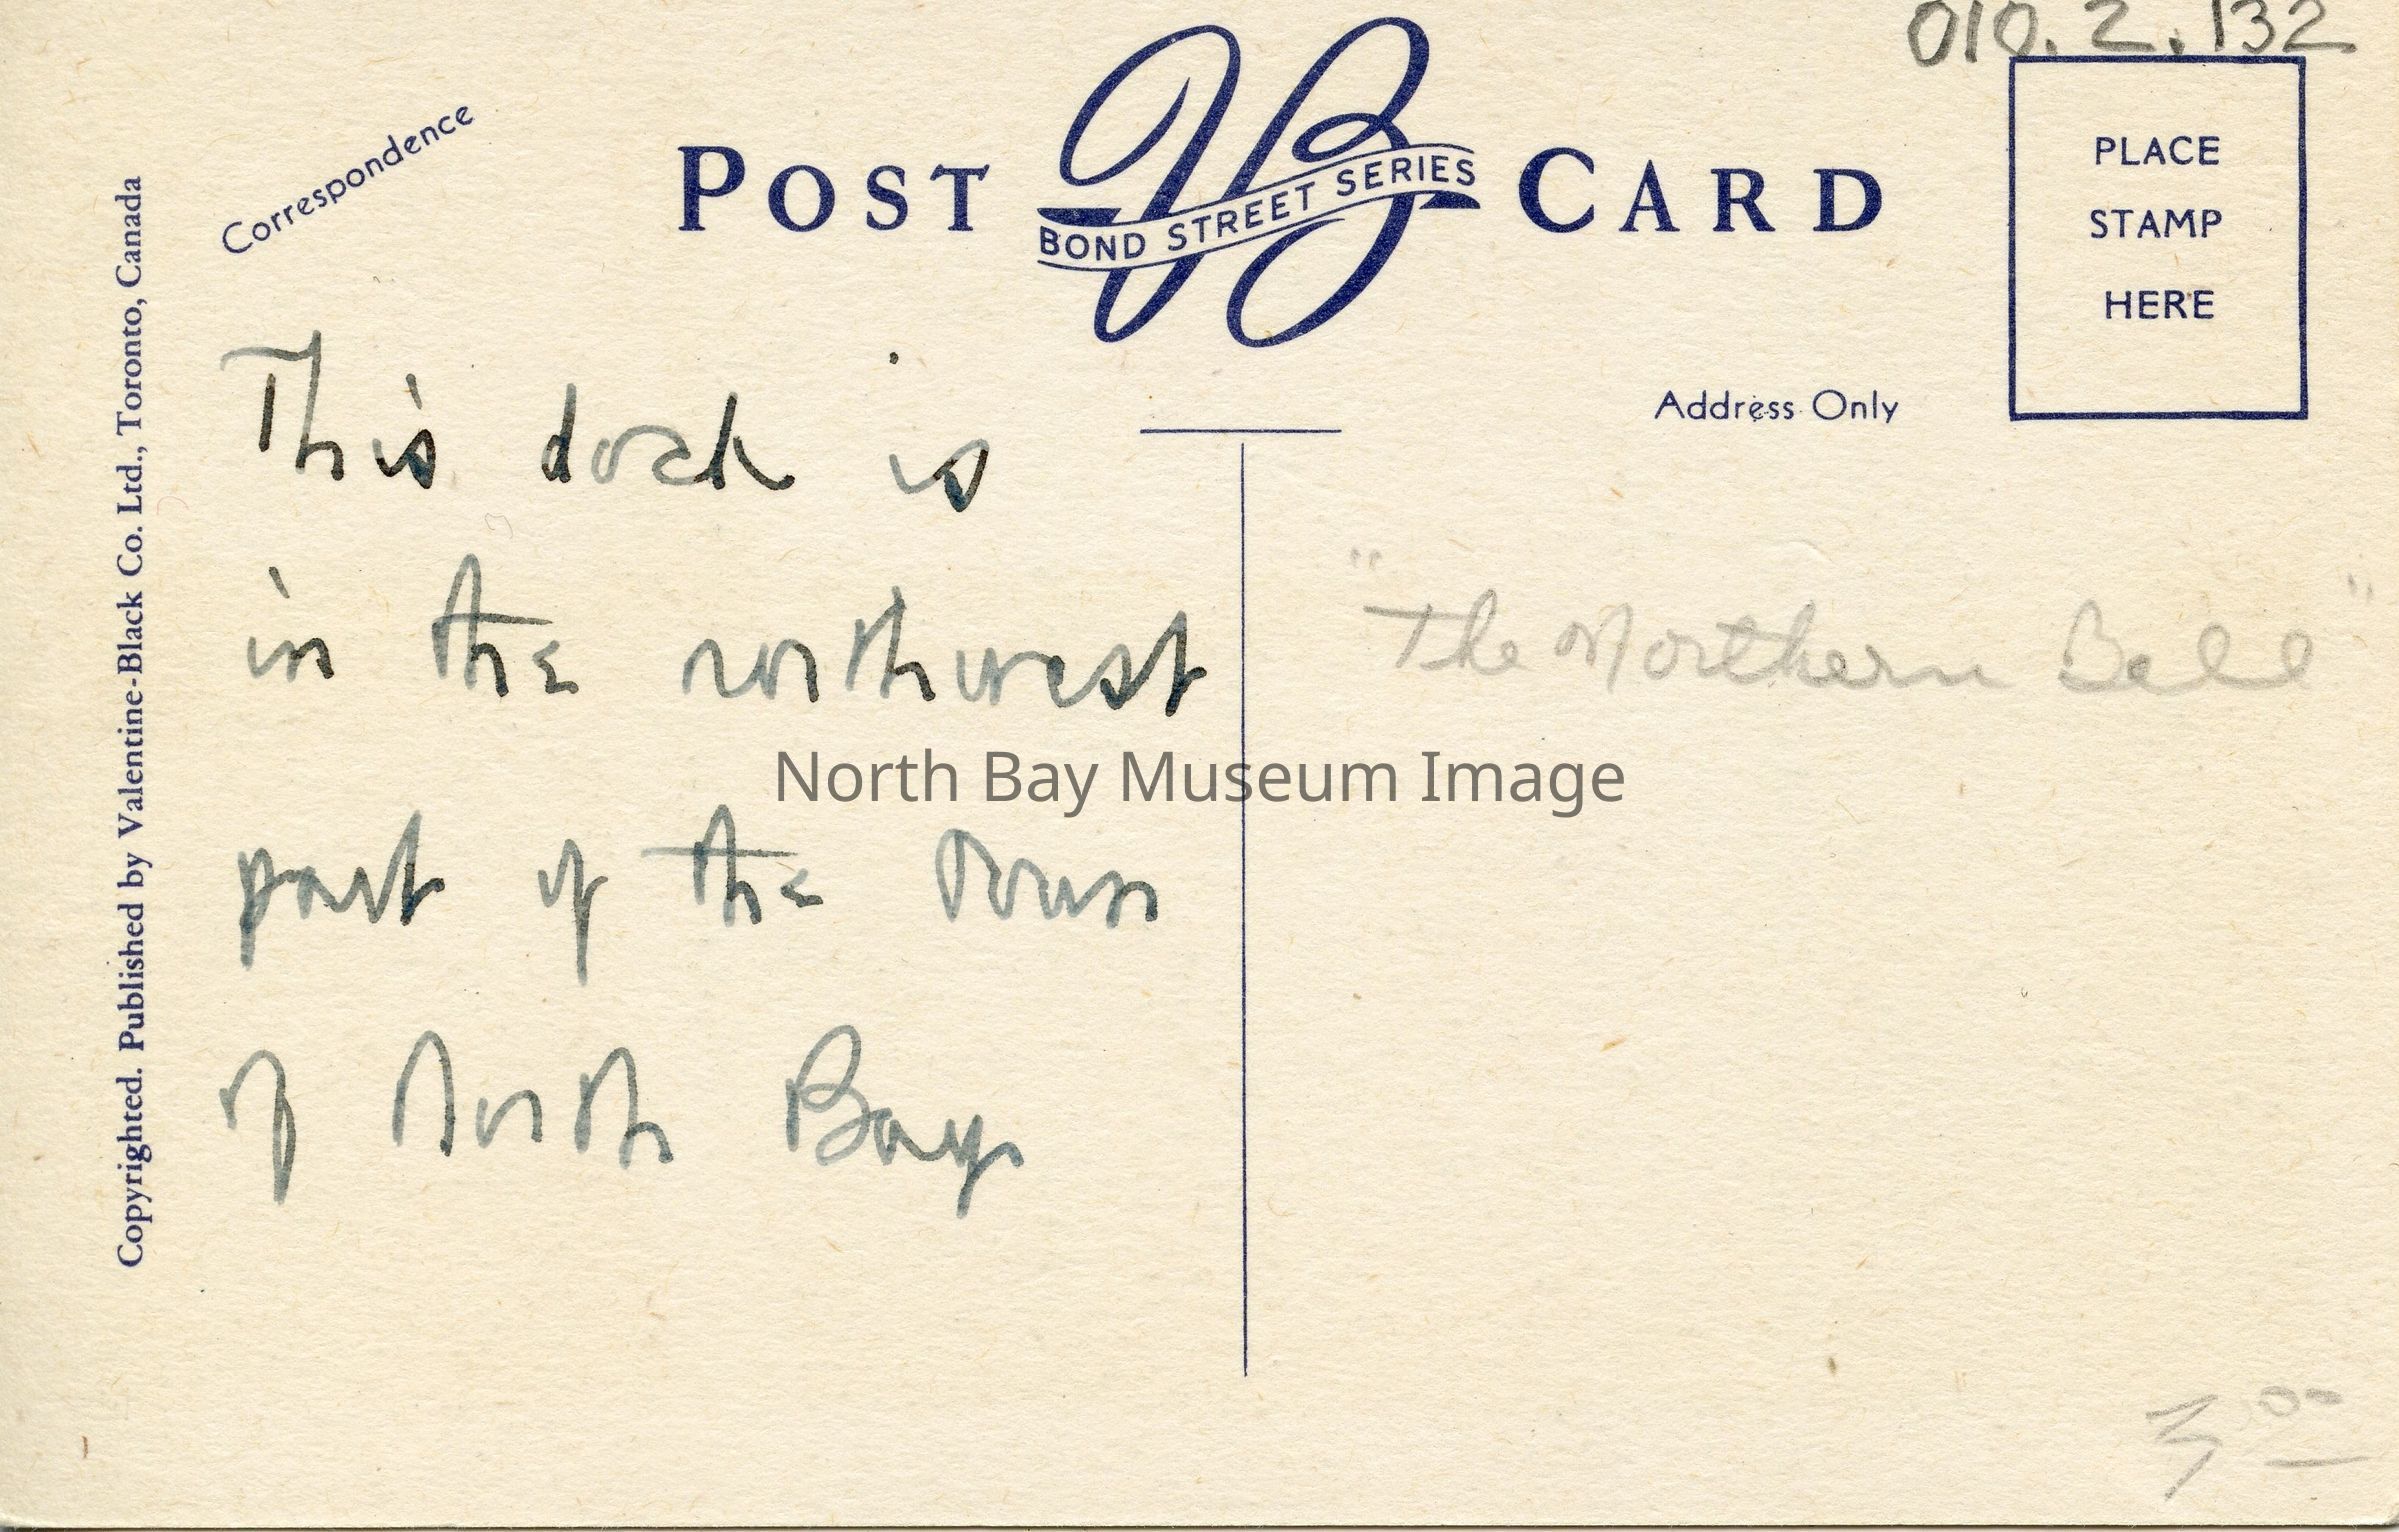 010.2.132
Correspondence
POST CARD
BOND STREET SERIES
PLACE
STAMP
HERE
Address Only
Copyrighted. Published by Valentine-Black Co. Ltd., Toronto, Canada
This dock is
in the northwest
part of the Town
of North Bay
"The Northern Bell"
North Bay Museum Image
3 00